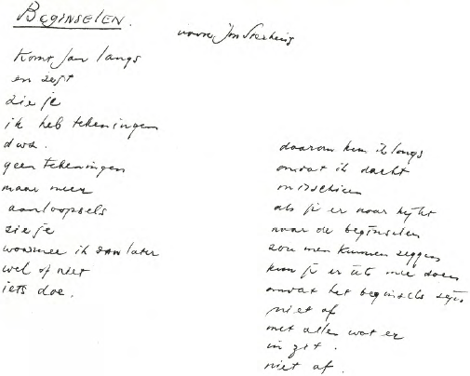 BEGINSELEN.
voor Jon
Komt Jan langs
en zegt
zie je
ik heb tekeningen
dwz.
geen tekeningen
maar meer
aanloopsels
zie je
waarmee ik dan later
wel of niet
iets doe.
daarom kom ik langs
omdat ik dacht
misschien
als je er naar kijkt
naar de beginselen
zou men kunnen zeggen
kun je er iets mee doen
omdat het beginsels zijn
niet af
met alles wat er
in zit.
niet af.